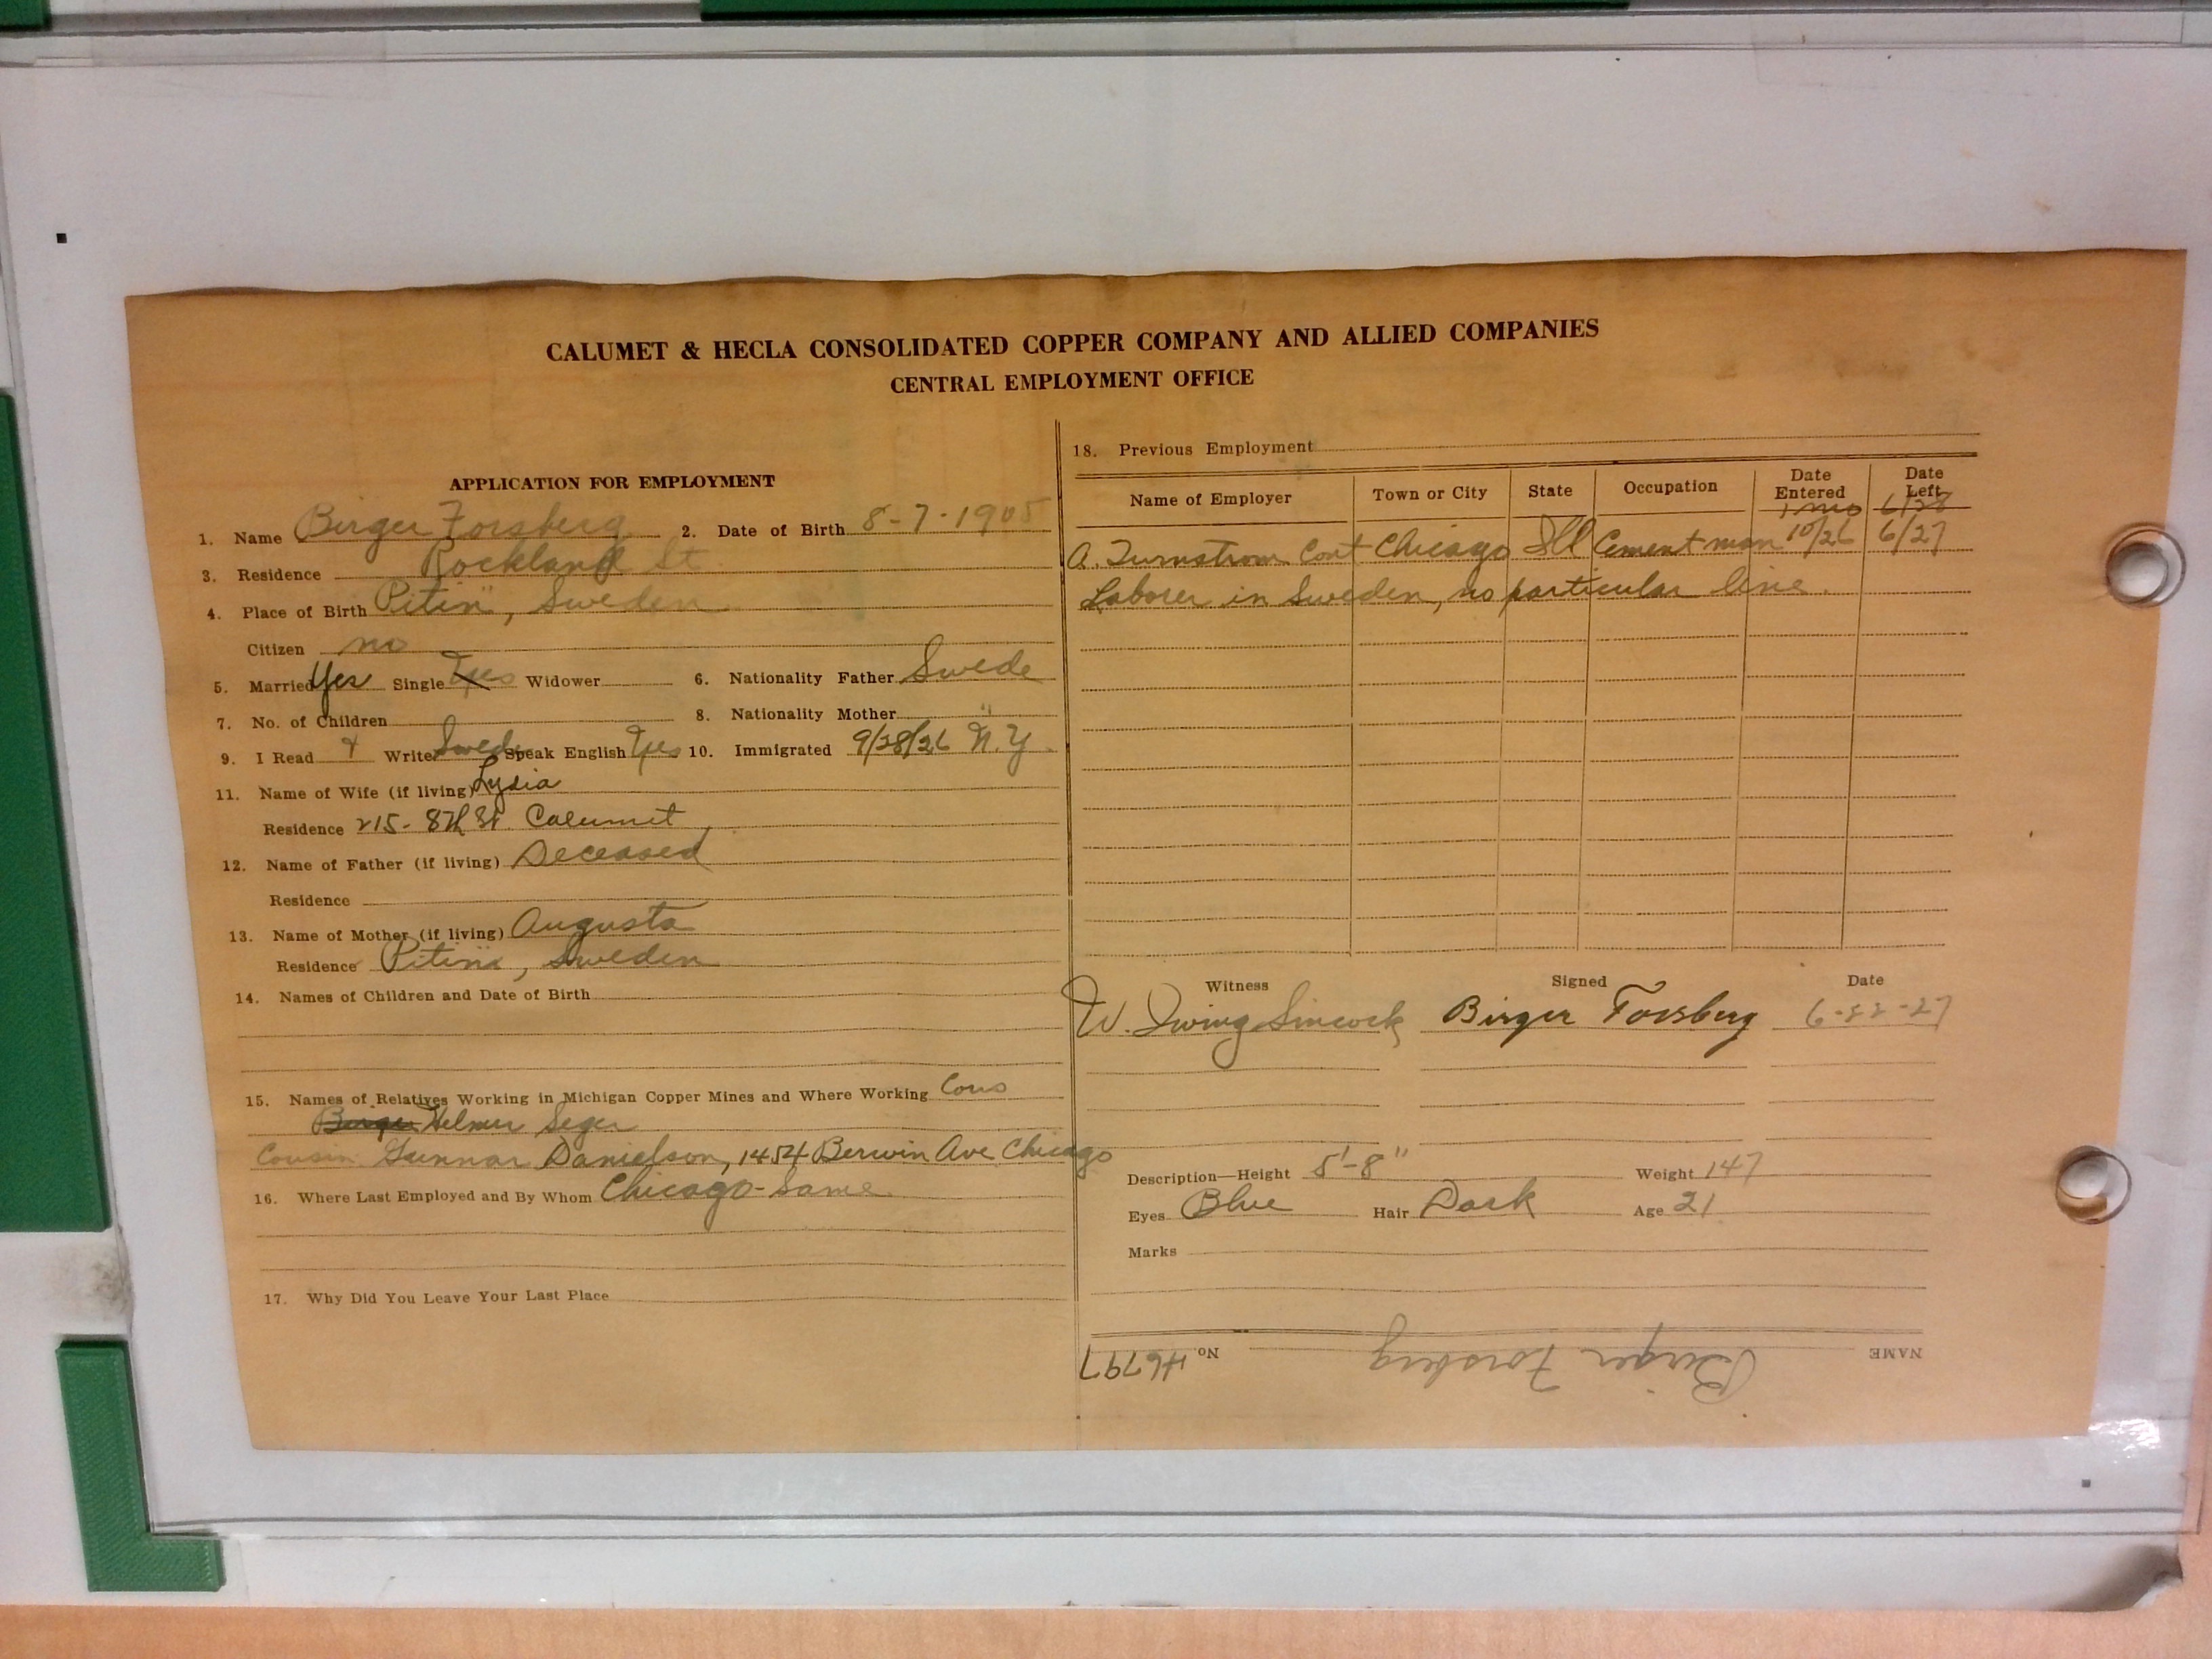 CALUMET & HECLA CONSOLIDATED COPPER COMPANY AND ALLIED COMPANIES
CENTRAL EMPLOYMENT OFFICE
APPLICATION FOR EMPLOYMENT
1. Name Birger Forsberg 2. Date of Birth 8-7-1905
3. Residence Rockland St.
4. Place of Birth Sweden
Citizen no
5. Married Yes Single Yes Widower 6. Nationality Father Swede
7. No. of Children 8. Nationality Mother "
9. I Read & Write Swede Speak English Yes 10. Immigrated 9/28/26 N.Y.
11. Name of Wife (if living) Lydia
Residence 215- 8th St. Calumet
12. Name of Father (if living) Deceased
Residence
13. Name of Mother (if living) Augusta
Residence Sweden
14. Names of Children and Date of Birth
15. Names of Relatives Working in Michigan Copper Mines and Where Working Cous
Birger Helmer Seger
Cousin Gunnar Danielson, 1454 Berwin Ave Chicago
16. Where Last Employed and By Whom Chicago - Same
17. Why Did You Leave Your Last Place
18. Previous Employment
Name of Employer Town or City State Occupation Date Entered Date Left
1 mo 6/28
A. Turnstrom Cont Chicago Ill Cement man 10/26 6/27
Laborer in Sweden, no particular line.
Witness Signed Date
W. Irving Sincock Birger Forsberg 6- -27
Description—Height 5'-8" Weight 147
Eyes Blue Hair Dark Age 21
Marks
NAME Birger Forsberg No. H6797